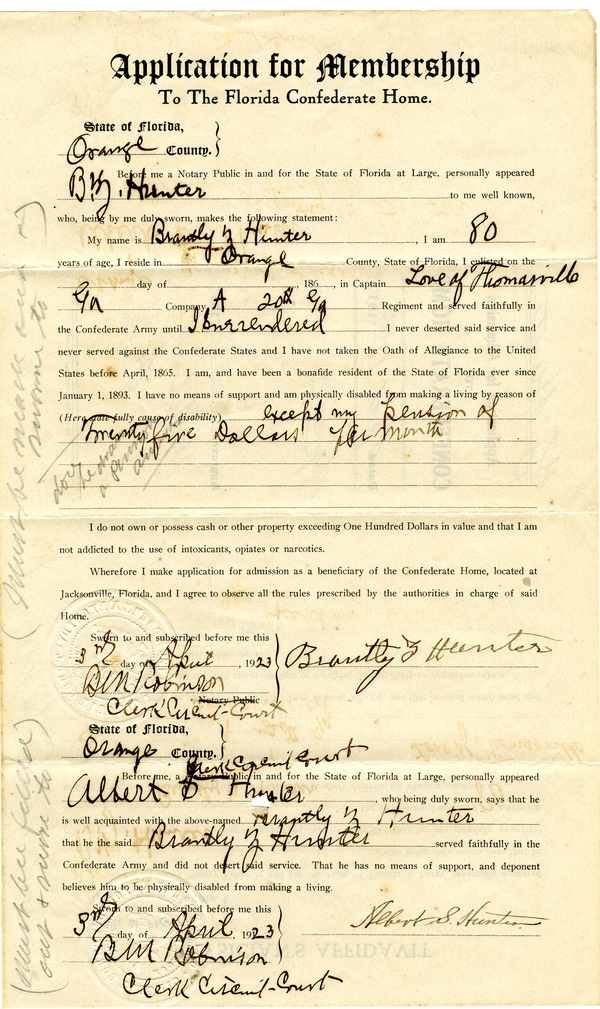 Application for Membership
To The Florida Confederate Home.
State of Florida,
Orange County.
Before me a Notary Public in and for the State of Florida at Large, personally appeared
B. Z. Hunter to me well known,
who, being by me duly sworn, makes the following statement:
My name is Brantly Z Hunter, I am 80
years of age, I reside in Orange County, State of Florida, I enlisted on the
day of 186 , in Captain Love of Thomasville
Ga Company A 20th Ga Regiment and served faithfully in
the Confederate Army until I Surrendered I never deserted said service and
never served against the Confederate States and I have not taken the Oath of Allegiance to the United
States before April, 1865. I am, and have been a bonafide resident of the State of Florida ever since
January 1, 1893. I have no means of support and am physically disabled from making a living by reason of
(Here state fully cause of disability) except my pension of
Twenty five Dollars per month
does he draw a pension
I do not own or possess cash or other property exceeding One Hundred Dollars in value and that I am
not addicted to the use of intoxicants, opiates or narcotics.
Wherefore I make application for admission as a beneficiary of the Confederate Home, located at
Jacksonville, Florida, and I agree to observe all the rules prescribed by the authorities in charge of said
Home.
Sworn to and subscribed before me this
3rd day of April, 1923 Brantly Z Hunter
B M Robinson
Notary Public
Clerk Circuit Court
State of Florida,
Orange County.
Clerk Circuit Court
Before me, a Notary Public in and for the State of Florida at Large, personally appeared
Albert S Hunter, who being duly sworn, says that he
is well acquainted with the above-named Brantly Z Hunter
that he the said Brantly Z Hunter served faithfully in the
Confederate Army and did not desert said service. That he has no means of support, and deponent
believes him to be physically disabled from making a living.
Sworn to and subscribed before me this
3rd day of April, 1923 Albert S. Hunter
B M Robinson
Clerk Circuit Court
(Must be made out &
sworne to
(Must be filled
out & sworne to